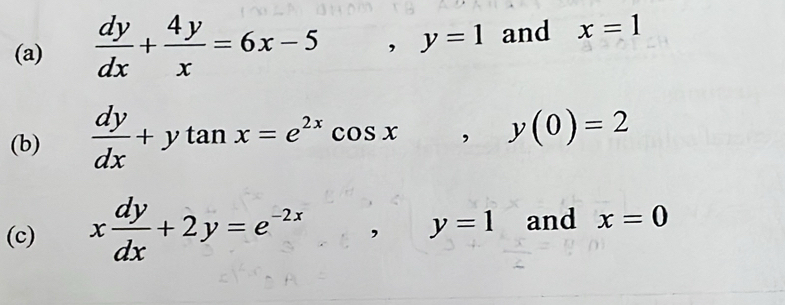 (a) dy/dx + 4y/x = 6x − 5 , y = 1 and x = 1
(b) dy/dx + y tan x = e^{2x} cos x , y(0) = 2
(c) x dy/dx + 2y = e^{−2x} , y = 1 and x = 0